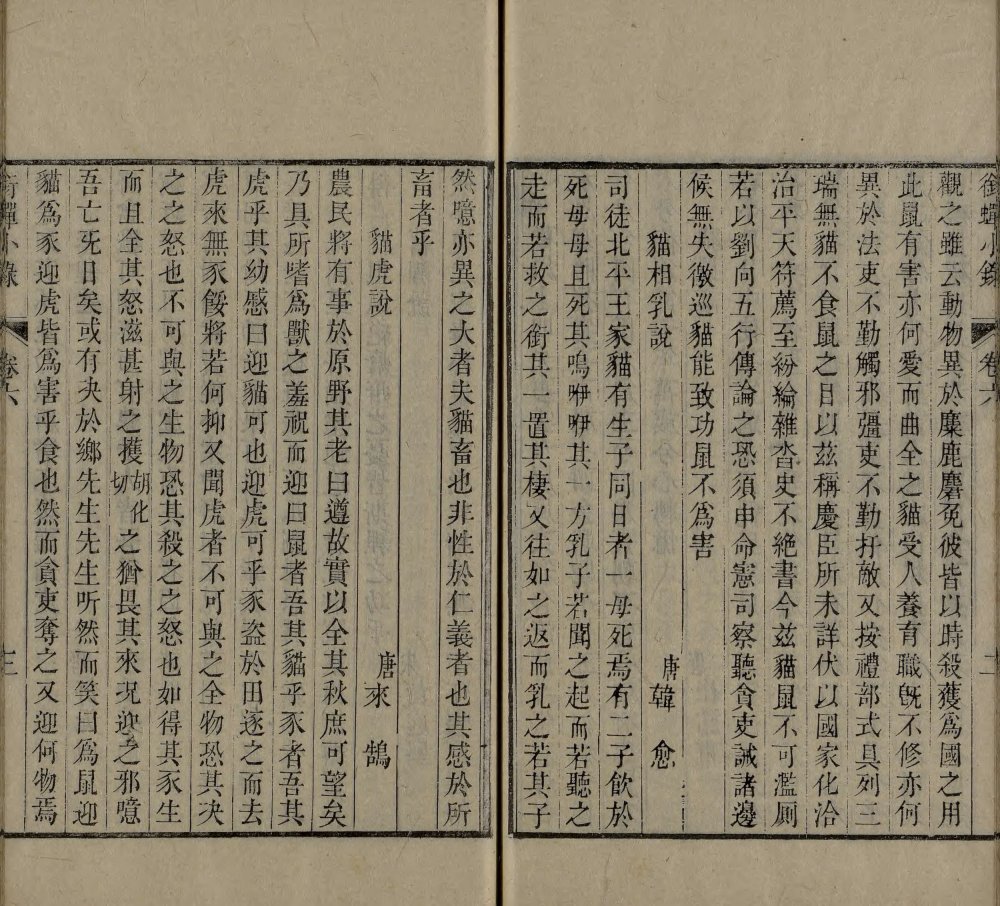 銜蟬小錄 卷六 二
觀之雖云動物異於麋鹿麏兔彼皆以時殺獲爲國之用
此鼠有害亦何愛而曲全之貓受人養育職旣不修亦何
異於法吏不勤觸邪彊吏不勤扞敵又按禮部式具列三
瑞無貓不食鼠之目以茲稱慶臣所未詳伏以國家化洽
治平天符薦至紛綸雜沓史不絕書今茲貓鼠不可濫厠
若以劉向五行傳論之恐須申命憲司察聽貪吏誡諸邊
候無失徼巡貓能致功鼠不爲害
貓相乳說 唐韓愈
司徒北平王家貓有生子同日者一母死焉有二子飲於
死母母且死其鳴咿咿其一方乳子若聞之起而若聽之
走而若救之銜其一置其棲又往如之返而乳之若其子
然噫亦異之大者夫貓畜也非性於仁義者也其感於所
畜者乎
貓虎說 唐來鵠
農民將有事於原野其老曰遵故實以全其秋庶可望矣
乃具所嗜爲獸之羞祝而迎曰鼠者吾其貓乎豕者吾其
虎乎其幼感曰迎貓可也迎虎可乎豕盜於田逐之而去
虎來無豕餒將若何抑又聞虎者不可與之全物恐其決
之之怒也不可與之生物恐其殺之之怒也如得其豕生
而且全其怒滋甚射之擭胡化切之猶畏其來況迎之邪噫
吾亡死日矣或有決於鄉先生先生听然而笑曰爲鼠迎
貓爲豕迎虎皆爲害乎食也然而貪吏奪之又迎何物焉
銜蟬小錄 卷六 三